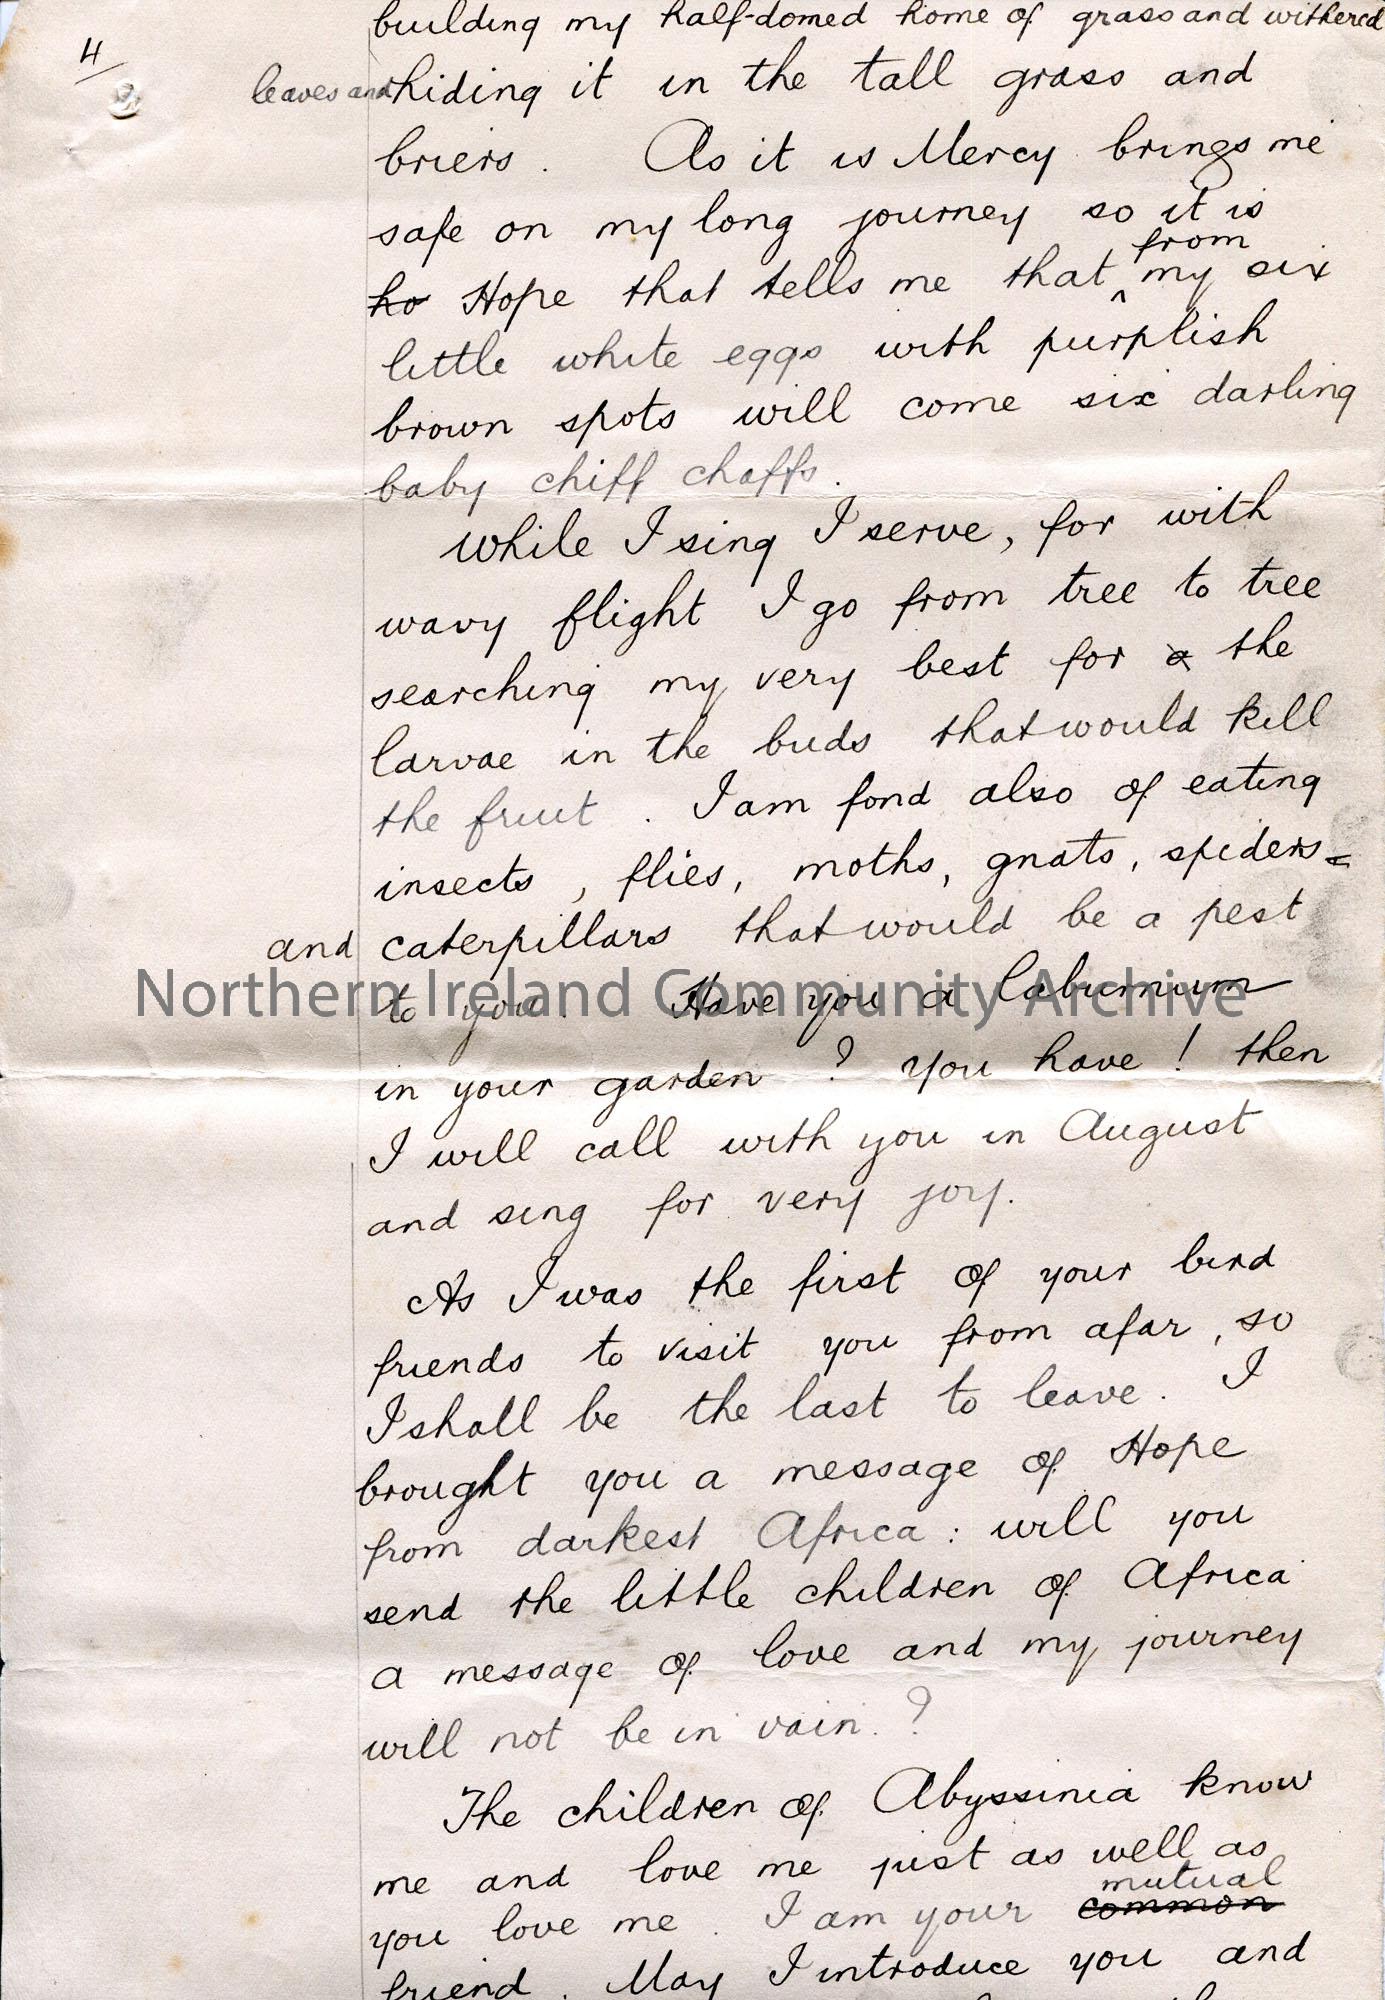 4
building my half-domed home of grass and withered
leaves and hiding it in the tall grass and
briers. As it is Mercy brings me
safe on my long journey so it is
from
ho Hope that tells me that ^ my six
little white eggs with purplish
brown spots will come six darling
baby chiff chaffs.
While I sing I serve, for with
wavy flight I go from tree to tree
searching my very best for a the
larvae in the buds that would kill
the fruit. I am fond also of eating
insects, flies, moths, gnats, spiders
and caterpillars that would be a pest
to you. Have you a laburnum
Northern Ireland Community Archive
in your garden? You have! then
I will call with you in August
and sing for very joy.
As I was the first of your bird
friends to visit you from afar, so
I shall be the last to leave. I
brought you a message of Hope
from darkest Africa: will you
send the little children of Africa
a message of love and my journey
will not be in vain.?
The children of Abyssinia know
me and love me just as well as
mutual
you love me. I am your common
friend. May I introduce you and